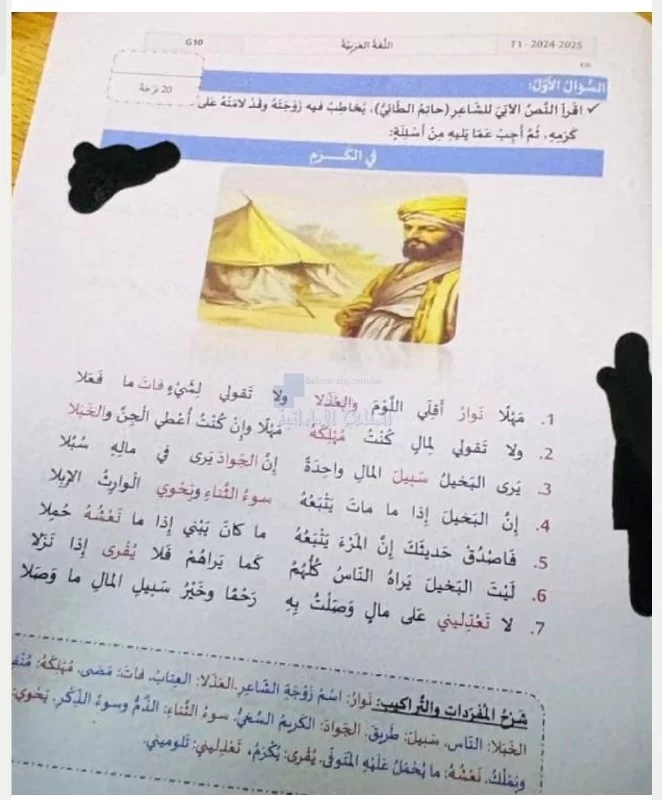 G10 اللُّغَةُ العَرَبِيَّةُ T1 - 2024-2025
20 دَرَجَةً
السُّؤالُ الأَوَّلُ:
✓ اقْرَأِ النَّصَّ الآتِيَ للشّاعِرِ (حاتِمُ الطّائِيُّ)، يُخاطِبُ فيهِ زَوْجَتَهُ وقَدْ لامَتْهُ عَلى
كَرَمِهِ، ثُمَّ أَجِبْ عَمّا يَليهِ مِنْ أَسْئِلَةٍ:
في الكَـــرَمِ
almanahj.com/ae
المناهج الإماراتية
1. مَهْلًا نَوارُ أَقِلّي اللَّوْمَ والعَذَلا ولا تَقولي لِشَيْءٍ فاتَ ما فَعَلا
2. ولا تَقولي لِمالٍ كُنْتُ مُهْلِكَهُ مَهْلًا وإِنْ كُنْتُ أُعْطي الْجِنَّ والخَبَلا
3. يَرى البَخيلُ سَبيلَ المالِ واحِدَةً إِنَّ الجَوادَ يَرى في مالِهِ سُبُلا
4. إِنَّ البَخيلَ إِذا ما ماتَ يَتْبَعُهُ سوءُ الثَّناءِ ويَحْوي الْوارِثُ الإِبِلا
5. فَاصْدُقْ حَديثَكَ إِنَّ المَرْءَ يَتْبَعُهُ ما كانَ يَبْني إِذا ما نَعْشُهُ حُمِلا
6. لَيْتَ البَخيلَ يَراهُ النّاسُ كُلُّهُمُ كَما يَراهُمْ فَلا يُقْرى إِذا نَزَلا
7. لا تَعْذِليني عَلى مالٍ وَصَلْتُ بِهِ رَحْمًا وخَيْرُ سَبيلِ المالِ ما وَصَلا
شَرْحُ المُفْرَداتِ والتَّراكيبِ: نَوارُ: اسْمُ زَوْجَةِ الشّاعِرِ. العَذَلا: العِتابُ. فاتَ: مَضى. مُهْلِكَهُ:
الخَبَلا: النّاس. سَبيلَ: طَريقَ. الجَوادَ: الكَريمُ السَّخِيُّ. سوءُ الثَّناءِ: الذَّمُّ وسوءُ الذِّكْرِ. يَحْوي:
ويَمْلِكُ. نَعْشُهُ: ما يُحْمَلُ عَلَيْهِ المُتَوَفّى. يُقْرى: يُكْرَمُ، تَعْذِليني: تَلوميني.